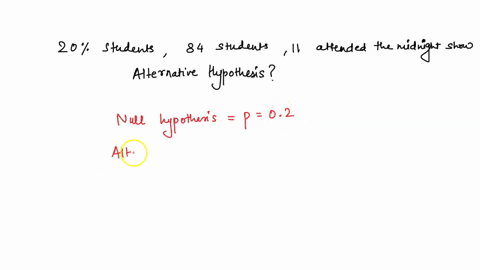 20% students, 84 students, 11 attended the midnight show
Alternative Hypothesis?
Null hypothesis = p = 0.2
Alt.